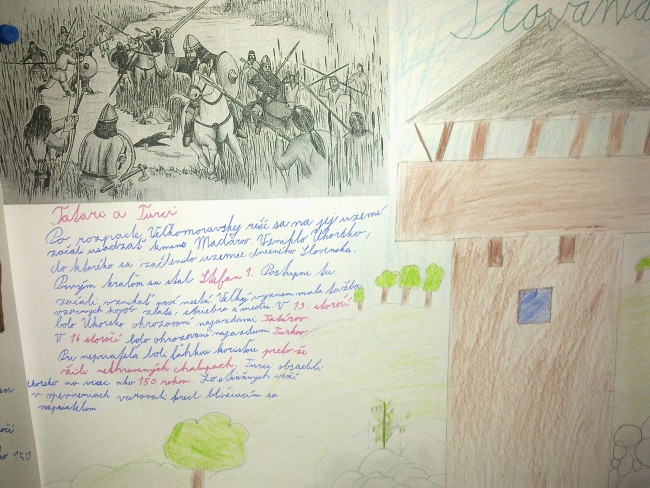 Slovania
Tatari a Turci
Po rozpade Veľkomoravskej ríše sa na jej územé
začali usadzať kmene Maďarov. Vzniklo Uhorsko,
do ktorého sa začlenilo územie dnešného Slovenska.
Prvým kráľom sa stal Štefan 1. Postupne tu
začali vznikať prvé mestá. Veľký význam mala ťažba
vzácnych kovov zlata, striebra a medi. V 13. storočí
bolo Uhorsko ohrozované nájazdami Tatárov.
V 16 storočí bolo ohrozované nájazdmi Turkov.
Pre nepriateľa boli ľahkou korisťou preto že
žili nechránených chalupách. Turci obsadili
Uhorsko na viac ako 150 rokov. Zo strážnych veží
v opevneniach varovali pred blížiacim sa
nepriateľom
150